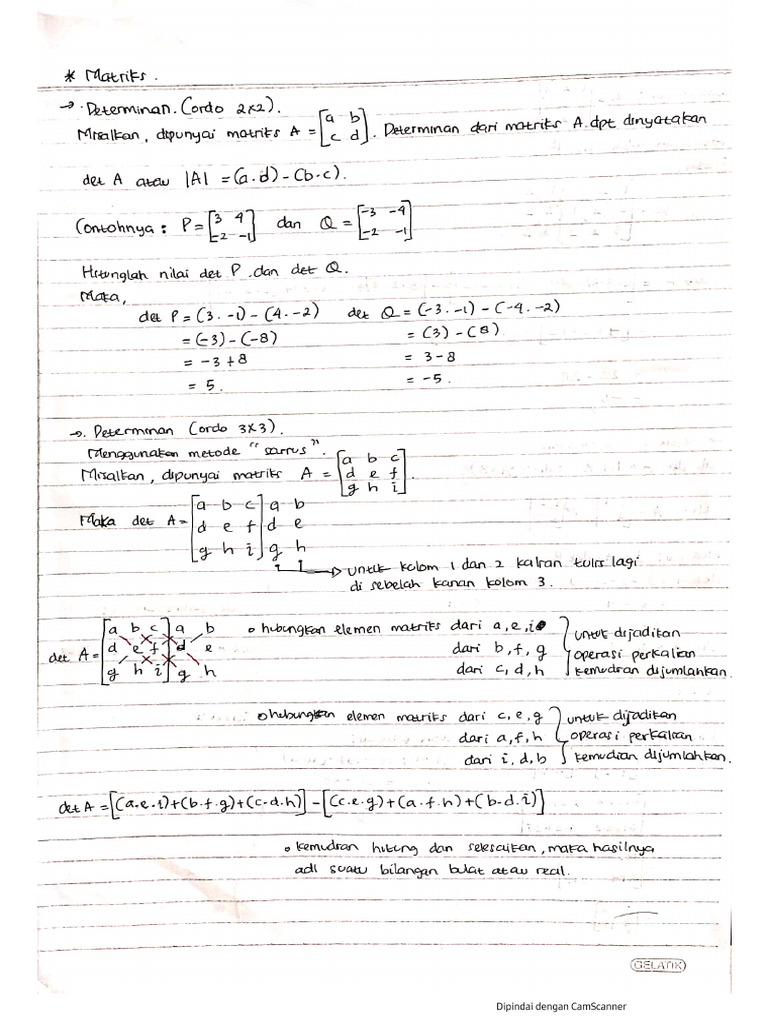 * Matriks.
→ Determinan. (ordo 2x2).
Misalkan, dipunyai matriks A = [a b
c d]. Determinan dari matriks A dpt dinyatakan
det A atau |A| = (a.d) - (b.c).
Contohnya : P = [3 4
-2 -1] dan Q = [-3 -4
-2 -1]
Hitunglah nilai det P dan det Q.
Maka,
det P = (3. -1) - (4. -2) det Q = (-3. -1) - (-4. -2)
= (-3) - (-8) = (3) - (8)
= -3 + 8 = 3 - 8
= 5. = -5.
→ Determinan (ordo 3x3).
Menggunakan metode "sarrus".
Misalkan, dipunyai matriks A = [a b c
d e f
g h i].
Maka det A = [a b c] a b
[d e f] d e
[g h i] g h
→ untuk kolom 1 dan 2 kalian tulis lagi
di sebelah kanan kolom 3.
det A = [a b c] a b
[d e f] d e
[g h i] g h
o hubungkan elemen matriks dari a, e, i } untuk dijadikan
dari b, f, g } operasi perkalian
dari c, d, h } kemudian dijumlahkan.
o hubungkan elemen matriks dari c, e, g } untuk dijadikan
dari a, f, h } operasi perkalian
dari i, d, b } kemudian dijumlahkan.
det A = [(a.e.i)+(b.f.g)+(c.d.h)] - [(c.e.g)+(a.f.h)+(b.d.i)]
• kemudian hitung dan selesaikan, maka hasilnya
adl suatu bilangan bulat atau real.
GELATIK
Dipindai dengan CamScanner